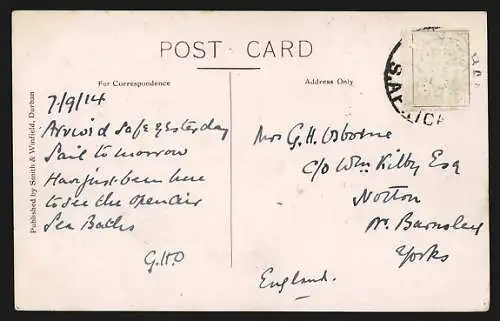 POST CARD
For Correspondence
Address Only
7/9/14
Arrived safe yesterday
Sail to morrow
Have just been here
to see the open air
Sea Baths
G.H.O
Mrs G. H. Osborne
c/o Wm Kilby Esq
Notton
Nr. Barnsley
Yorks
England.
Published by Smith & Winfield, Durban
S.AF